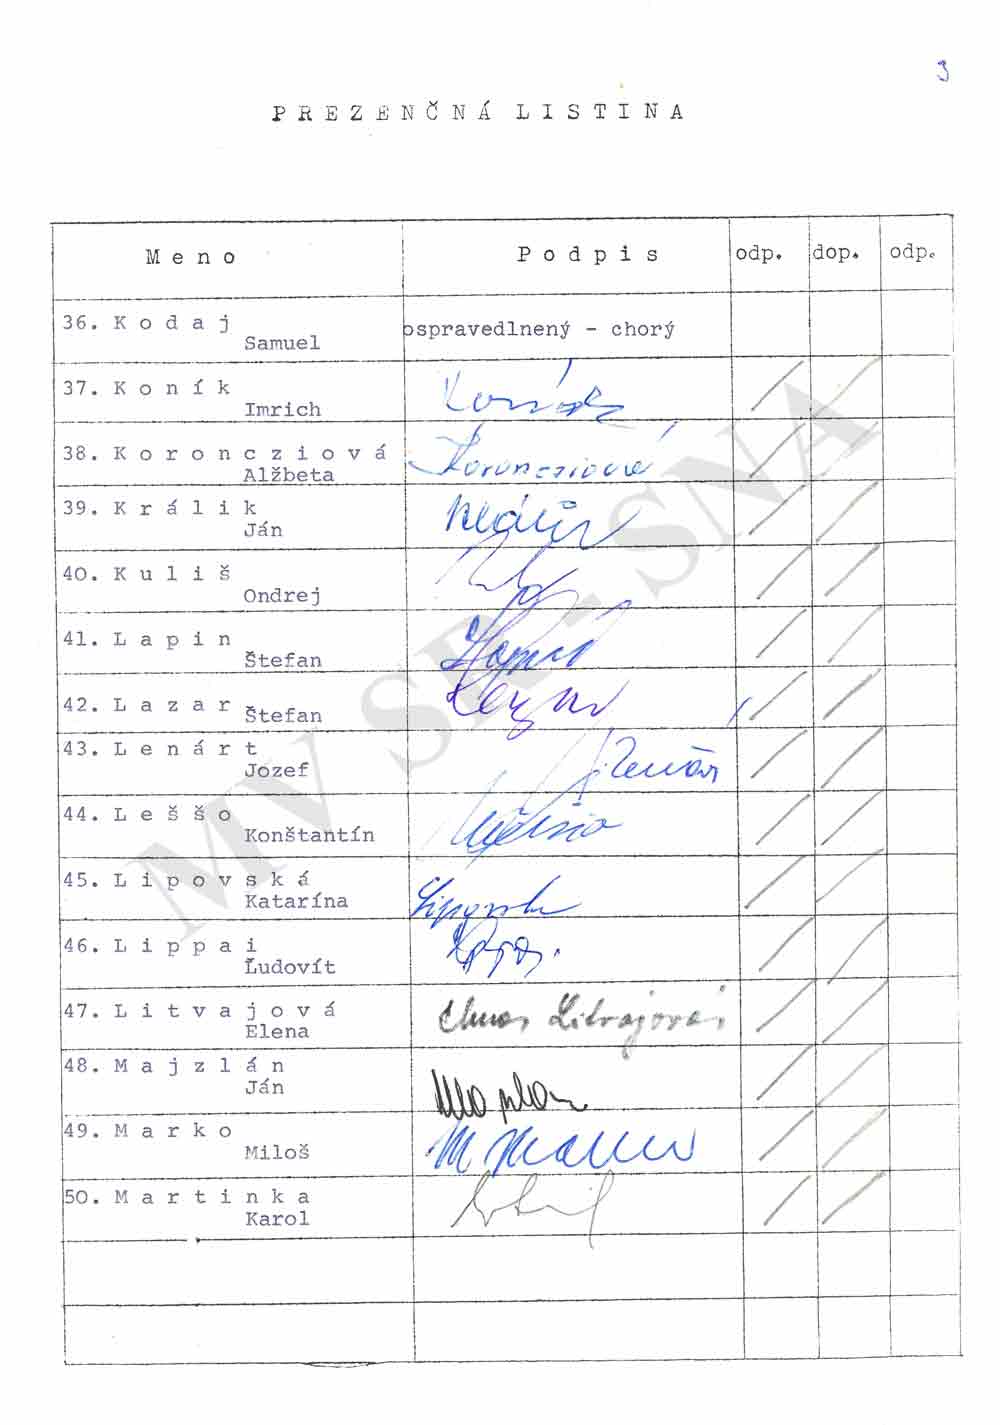 3
PREZENČNÁ LISTINA
Meno Podpis odp. dop. odp.
36. Kodaj
Samuel
ospravedlnený - chorý
37. Koník
Imrich
38. Koroncziová
Alžbeta
Koroncziová
39. Králik
Ján
40. Kuliš
Ondrej
41. Lapin
Štefan
42. Lazar
Štefan
43. Lenárt
Jozef
44. Leššo
Konštantín
45. Lipovská
Katarína
46. Lippai
Ľudovít
47. Litvajová
Elena
Elena Litvajová
48. Majzlán
Ján
49. Marko
Miloš
50. Martinka
Karol
MV SR - SNA